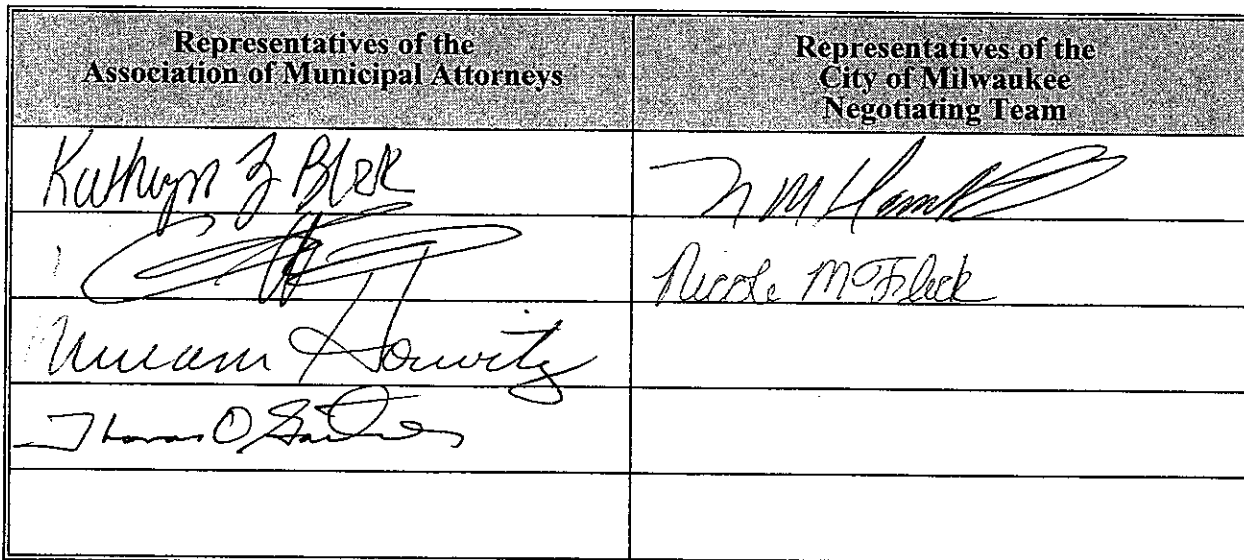 Representatives of the
Association of Municipal Attorneys
Representatives of the
City of Milwaukee
Negotiating Team
Kathryn Z Block
Nicole M Fleck
Miriam Horwitz
Thomas O Gartner